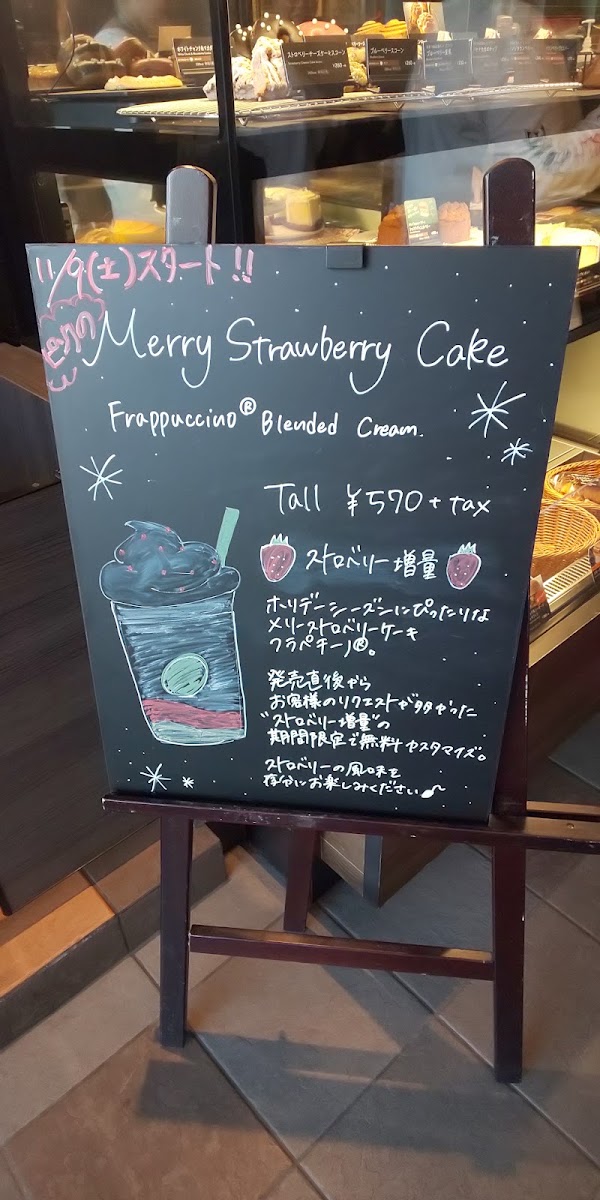 ストロベリーチーズケーキスコーン
ブルーベリースコーン
11/9(土)スタート!!
ピンクの
Merry Strawberry Cake
Frappuccino® Blended Cream.
Tall ¥570 + tax
ストロベリー増量
ホリデーシーズンにぴったりな
メリーストロベリーケーキ
フラペチーノ®。
発売直後から
お客様のリクエストが多かった
"ストロベリー増量"の
期間限定で無料カスタマイズ。
ストロベリーの風味を
存分にお楽しみください♪